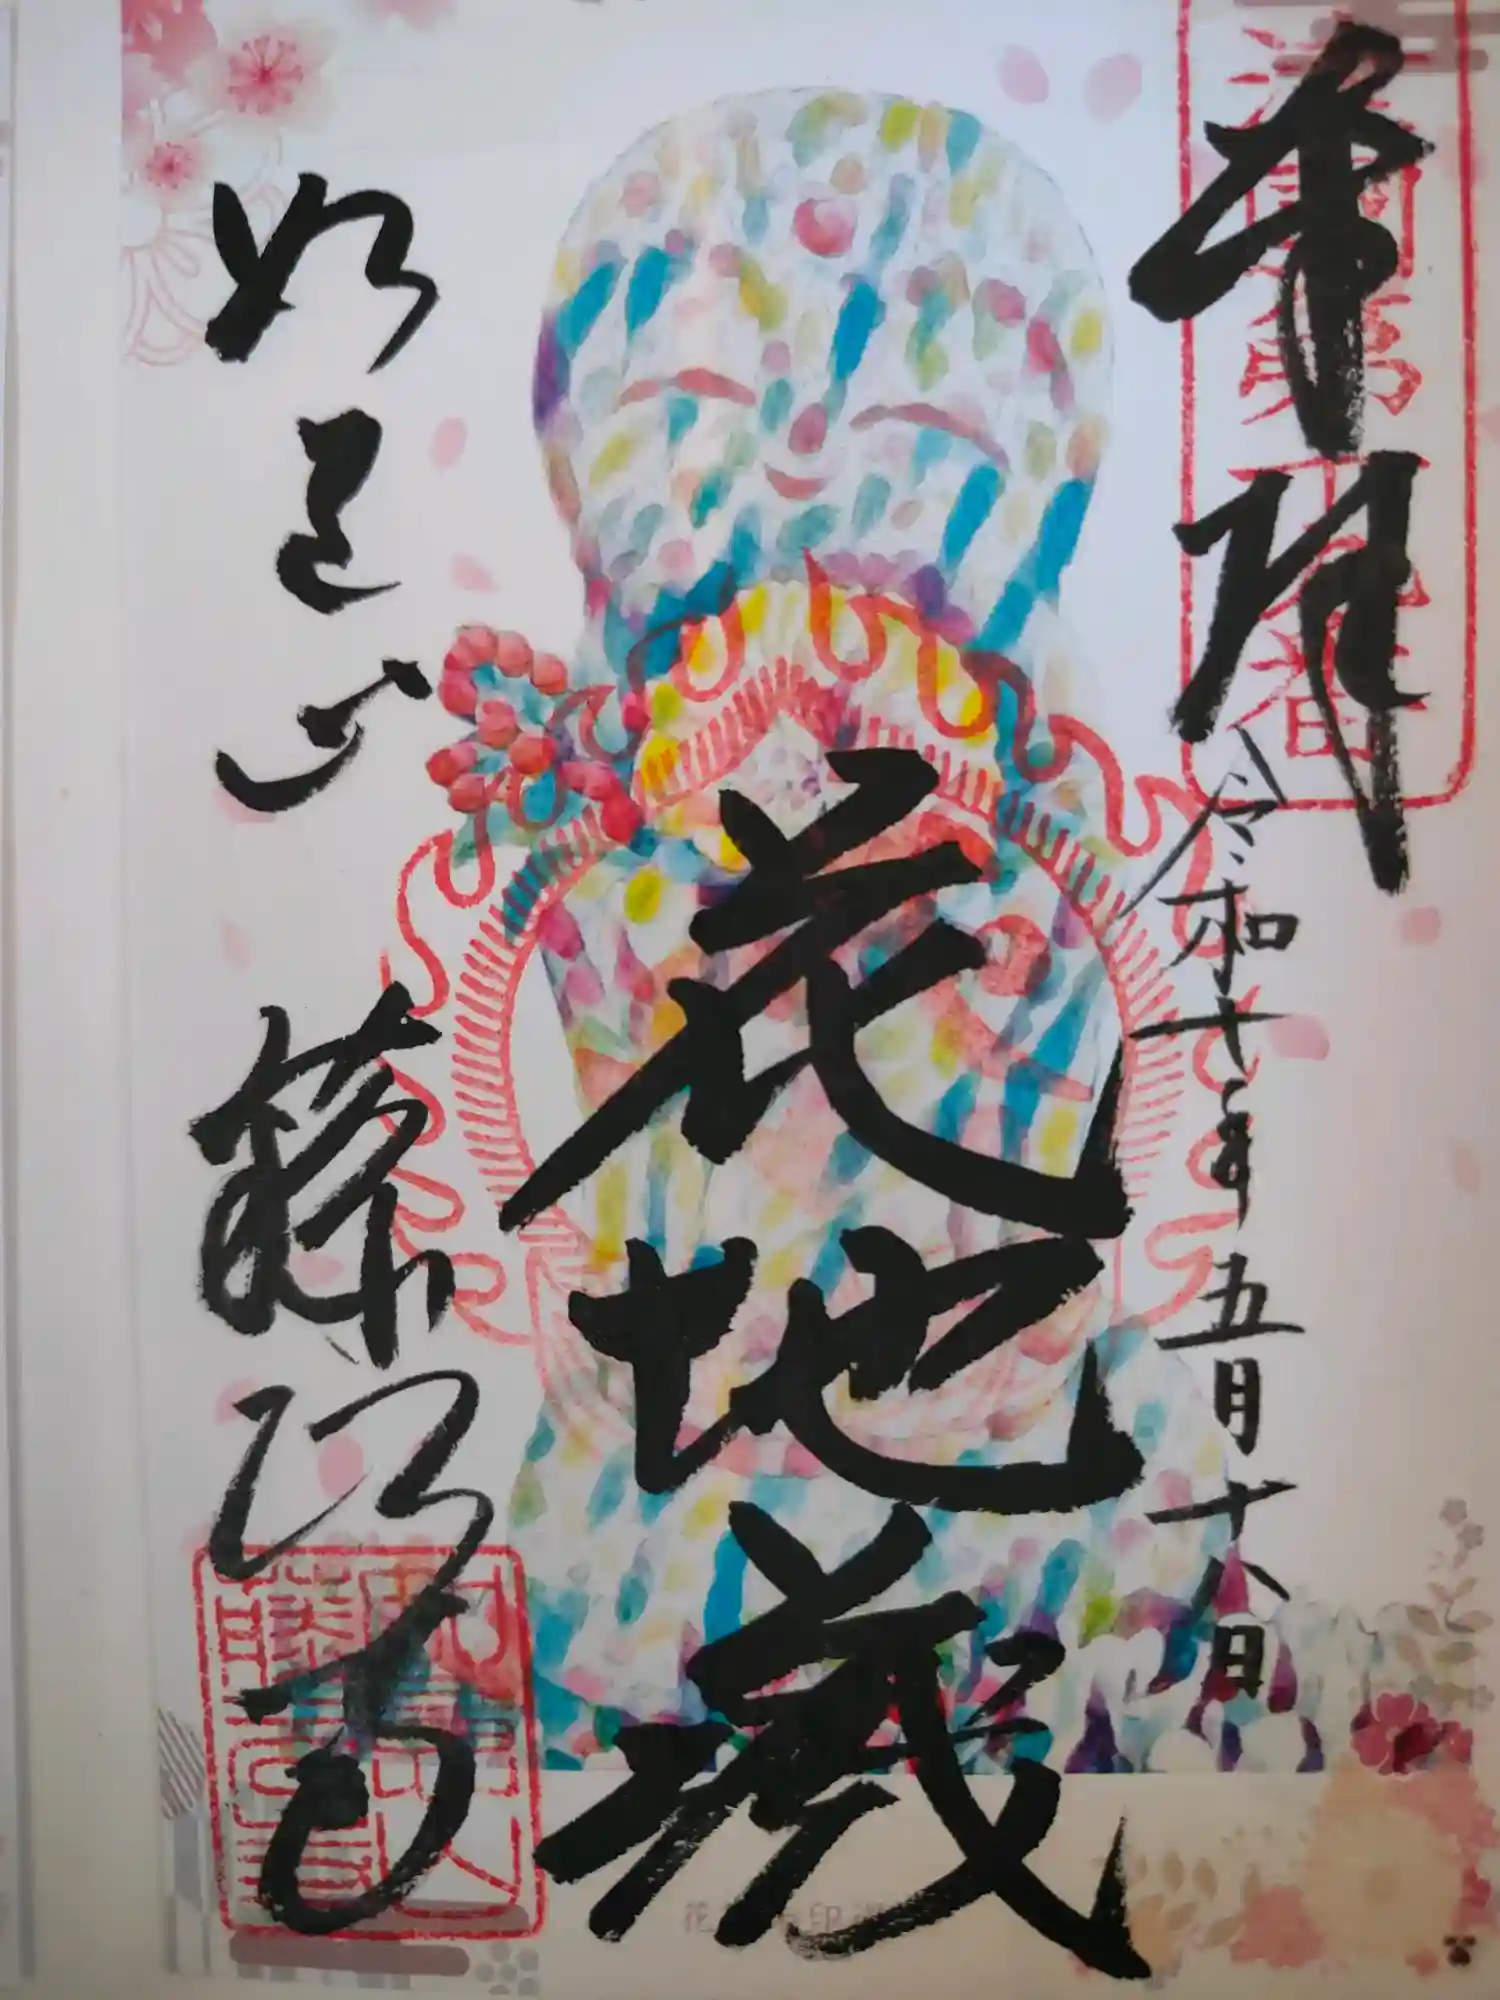 奉拝
令和七年五月十八日
花地蔵
如意山
藤次寺